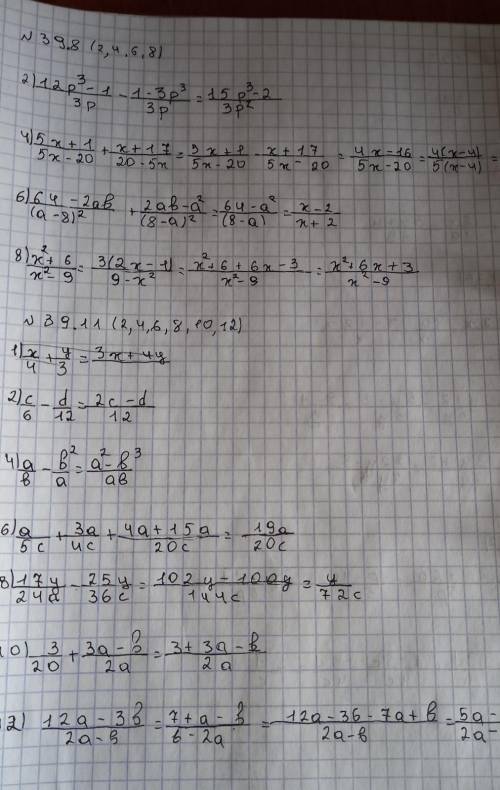 № 39.8 (2,4,6,8)
2) (12p³ - 1)/(3p) - (1 - 3p³)/(3p) = (15p³ - 2)/(3p²)
4) (5x + 1)/(5x - 20) + (x + 17)/(20 - 5x) = (5x + 8)/(5x - 20) - (x + 17)/(5x - 20) = (4x - 16)/(5x - 20) = (4(x - 4))/(5(x - 4)) =
6) (64 - 2ab)/(a - 8)² + (2ab - a²)/(8 - a)² = (64 - a²)/(8 - a) = (x - 2)/(x + 2)
8) (x² + 6)/(x² - 9) = (3(2x - 1))/(9 - x²) = (x² + 6 + 6x - 3)/(x² - 9) = (x² + 6x + 3)/(x² - 9)
№ 39.11 (2,4,6,8,10,12)
1) x/4 + y/3 = 3x + 4y
2) c/6 - d/12 = (2c - d)/12
4) a/в - в²/a = (a² - в³)/(aв)
6) a/(5c) + (3a)/(4c) + (4a + 15a)/(20c) = (19a)/(20c)
8) (17y)/(24d) - (25y)/(36c) = (102y - 100y)/(144c) = y/(72c)
10) 3/20 + (3a - в)/(2a) = (3 + 3a - в)/(2a)
12) (12a - 3в)/(2a - в) = (7 + a - в)/(в - 2a) = (12a - 36 - 7a + в)/(2a - в) = (5a -)/(2a -)